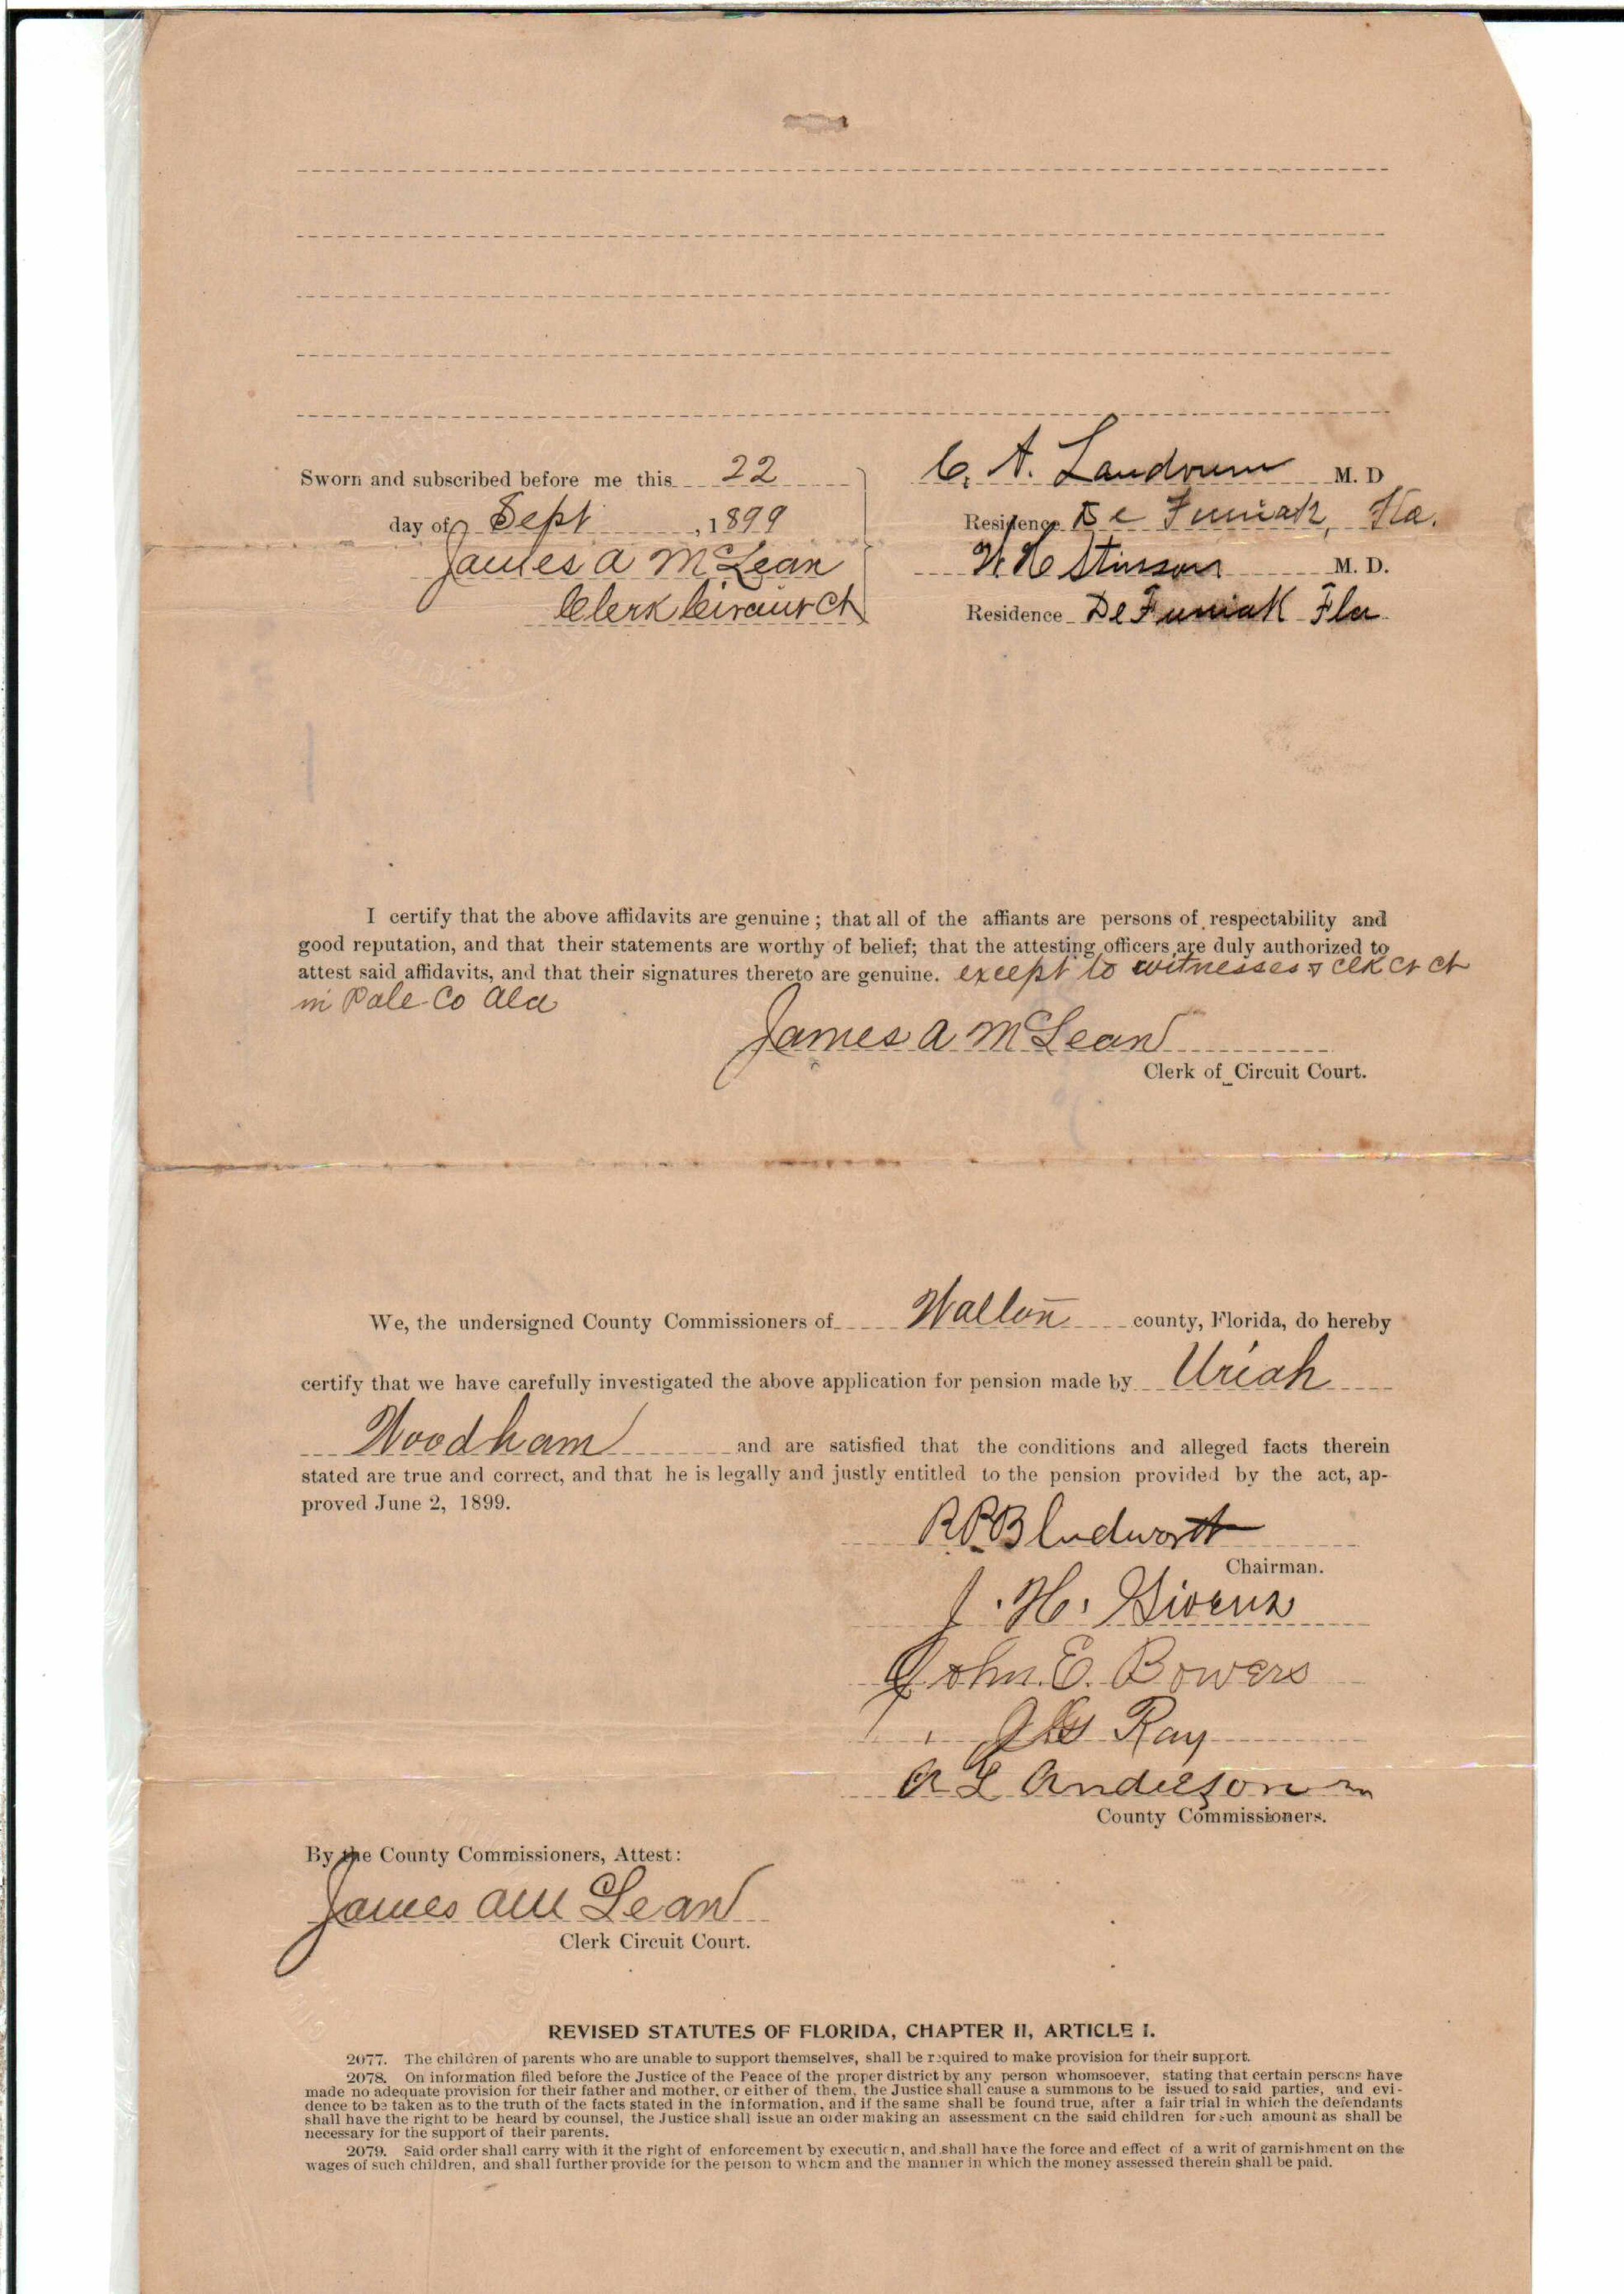 Sworn and subscribed before me this 22
day of Sept, 1899
James A McLean
Clerk Circuit Ct
C. A. Landrum M. D
Residence De Funiak, Fla.
W H Stinson M. D.
Residence De Funiak Fla
I certify that the above affidavits are genuine; that all of the affiants are persons of respectability and
good reputation, and that their statements are worthy of belief; that the attesting officers are duly authorized to
attest said affidavits, and that their signatures thereto are genuine. except to witnesses & clk ct ct
in Dale Co Ala
James A McLean
Clerk of Circuit Court.
We, the undersigned County Commissioners of Walton county, Florida, do hereby
certify that we have carefully investigated the above application for pension made by Uriah
Woodham and are satisfied that the conditions and alleged facts therein
stated are true and correct, and that he is legally and justly entitled to the pension provided by the act, ap-
proved June 2, 1899.
R P Bludworth
Chairman.
J. H. Givens
John E. Bowers
Ray
A L Anderson
County Commissioners.
By the County Commissioners, Attest:
James A McLean
Clerk Circuit Court.
REVISED STATUTES OF FLORIDA, CHAPTER II, ARTICLE I.
2077. The children of parents who are unable to support themselves, shall be required to make provision for their support.
2078. On information filed before the Justice of the Peace of the proper district by any person whomsoever, stating that certain persons have
made no adequate provision for their father and mother, or either of them, the Justice shall cause a summons to be issued to said parties, and evi-
dence to be taken as to the truth of the facts stated in the information, and if the same shall be found true, after a fair trial in which the defendants
shall have the right to be heard by counsel, the Justice shall issue an order making an assessment on the said children for such amount as shall be
necessary for the support of their parents.
2079. Said order shall carry with it the right of enforcement by execution, and shall have the force and effect of a writ of garnishment on the
wages of such children, and shall further provide for the person to whom and the manner in which the money assessed therein shall be paid.